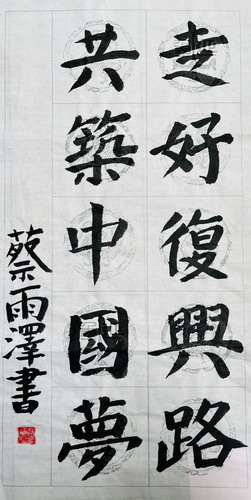 走好復興路
共築中國夢
蔡雨澤書